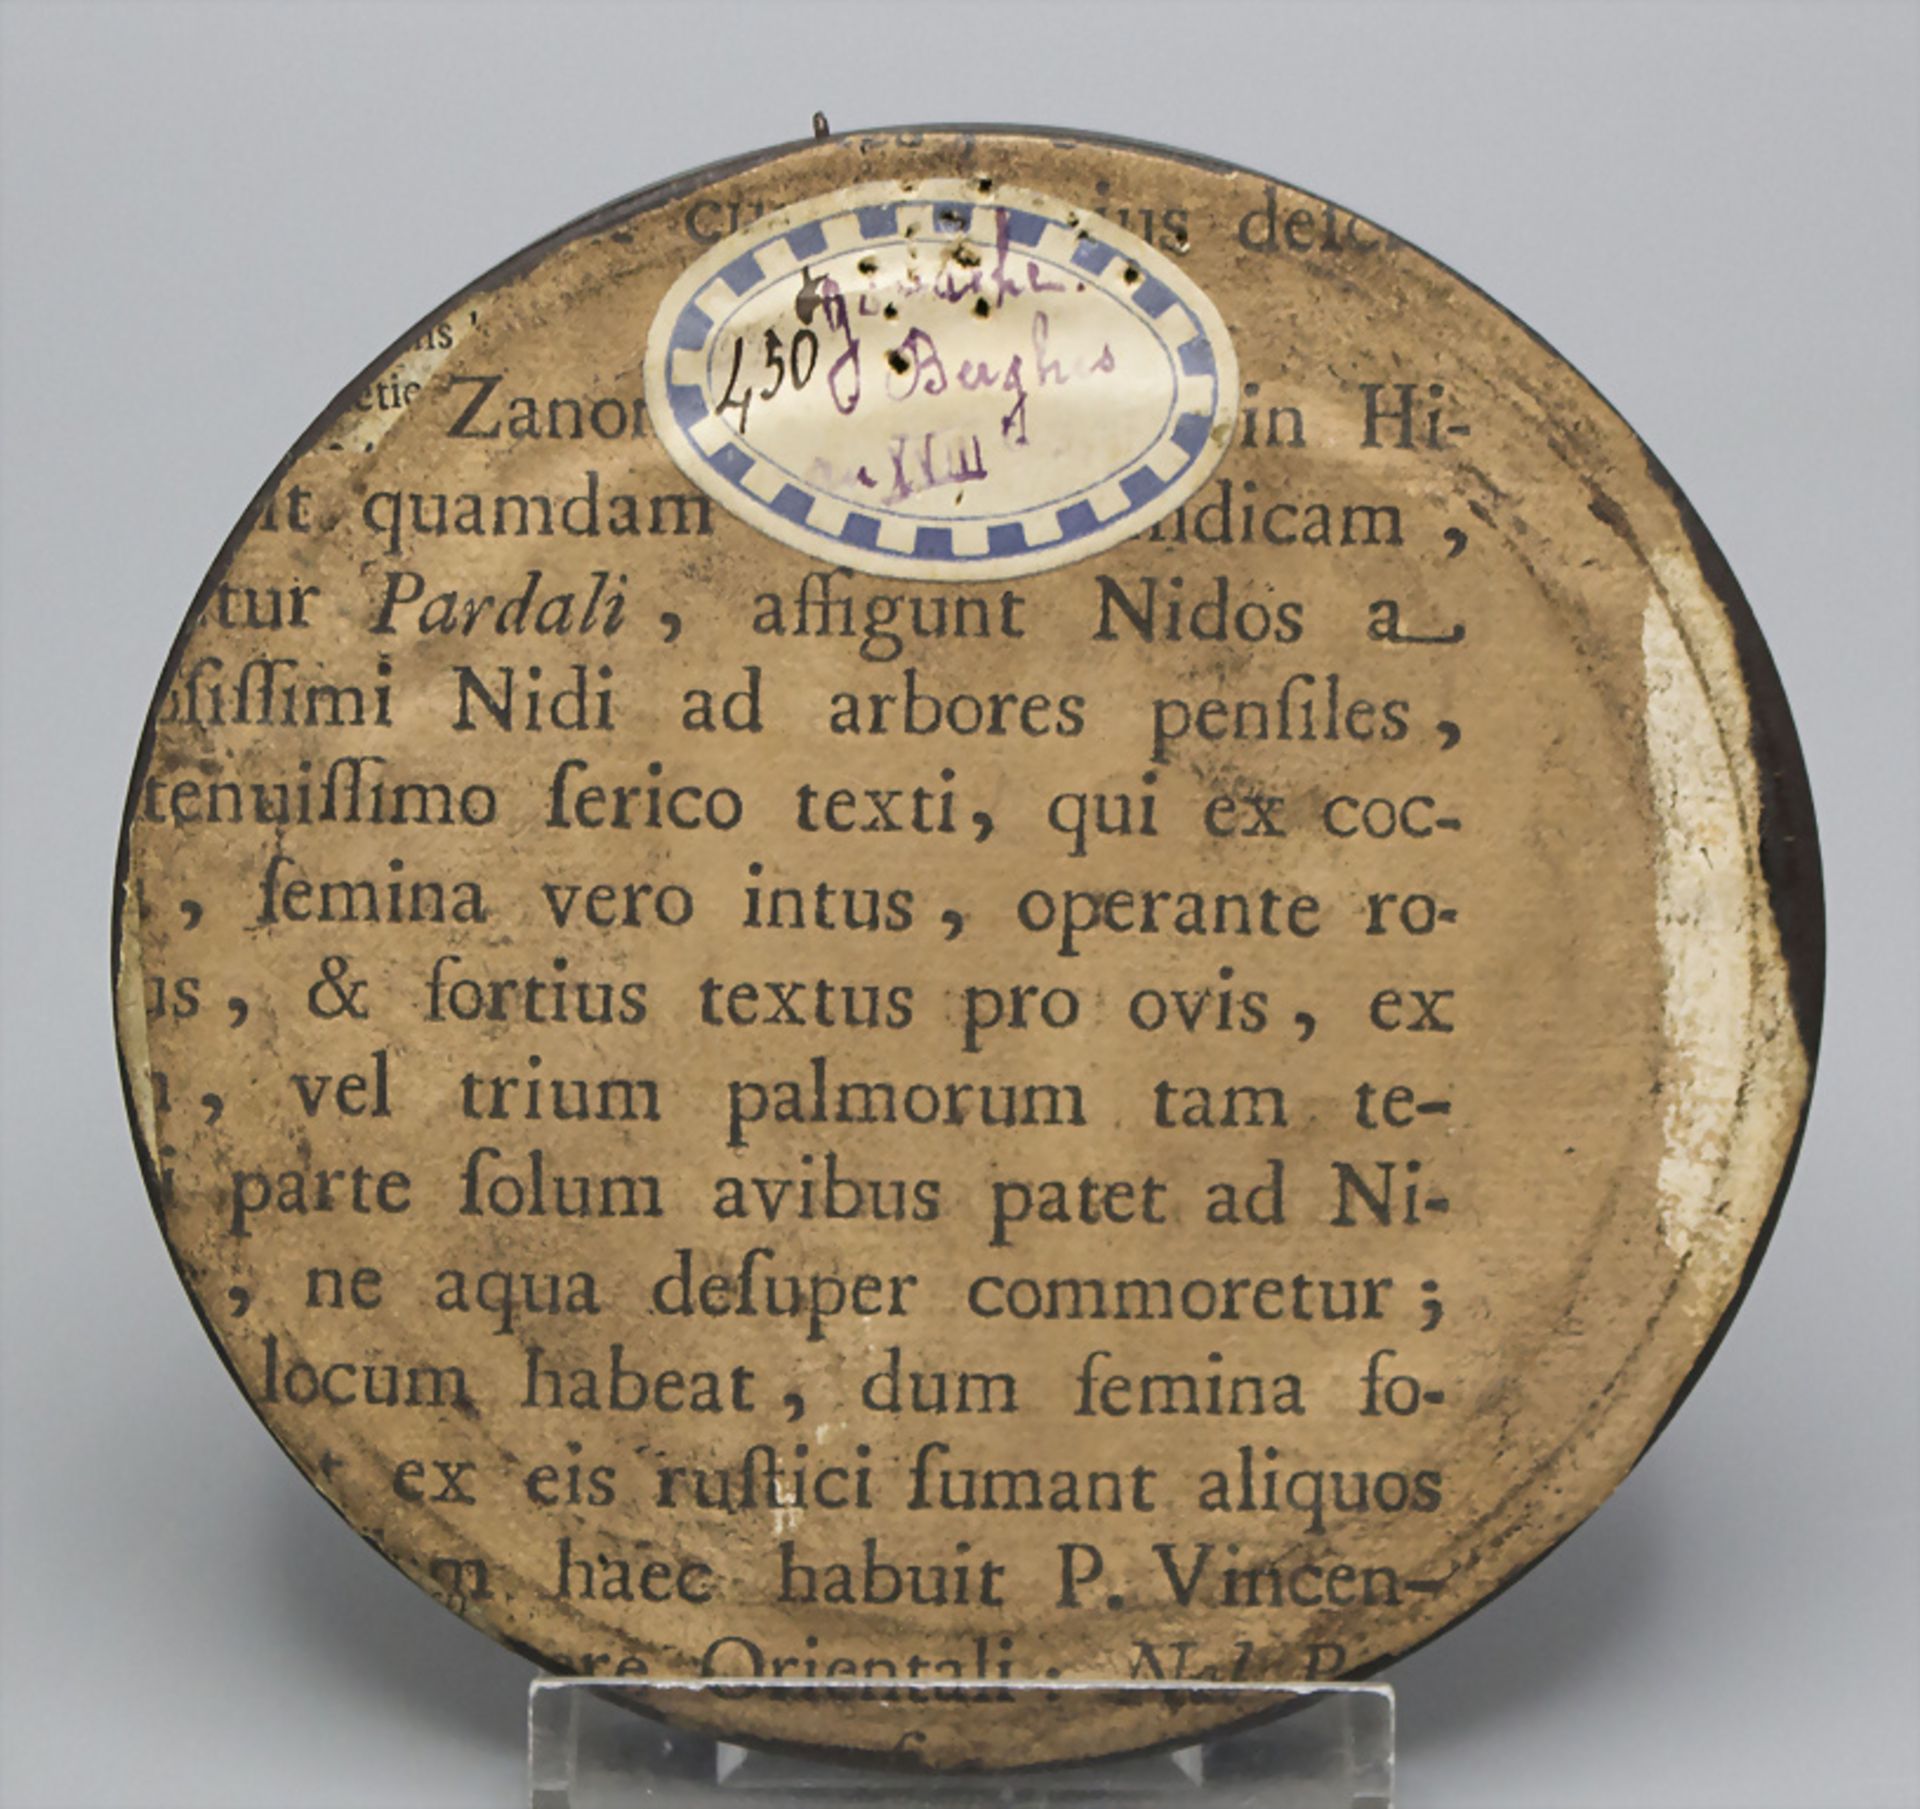 ius desc
Zanon in Hi-
it quamdam ndicam,
tur Pardali, affigunt Nidos a
ſiſſimi Nidi ad arbores penſiles,
tenuiſſimo ſerico texti, qui ex coc-
, femina vero intus, operante ro-
us, & fortius textus pro ovis, ex
, vel trium palmorum tam te-
parte ſolum avibus patet ad Ni-
, ne aqua deſuper commoretur;
locum habeat, dum femina fo-
ex eis ruſtici ſumant aliquos
m haec habuit P. Vincen-
re Orientali:
450
Berghes
XVIII